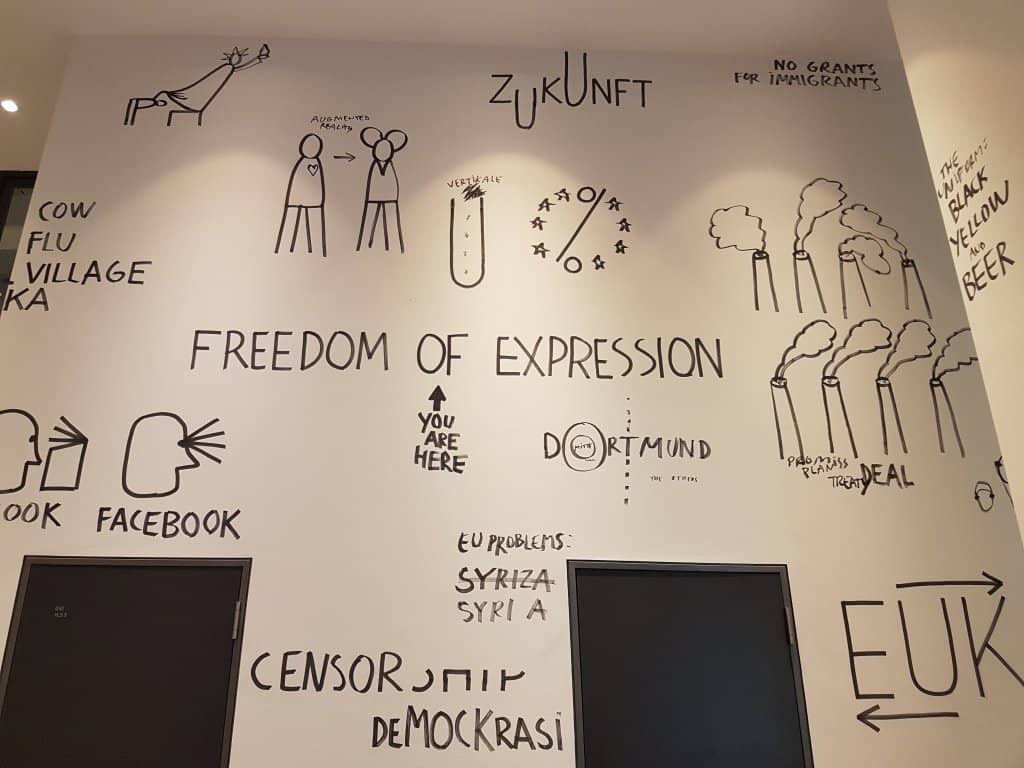 ZUKUNFT
NO GRANTS
FOR IMMIGRANTS
AUGMENTED
VERTIKALE
THE
UNIFORM:
BLACK
YELLOW
AND
BEER
COW
FLU
VILLAGE
KA
FREEDOM OF EXPRESSION
YOU
ARE
HERE
DORTMUND
MITTE
THE OTHERS
DEAL
OOK
FACEBOOK
EU PROBLEMS:
SYRIZA
SYRI A
CENSOR
DEMOCKRASI
EUK